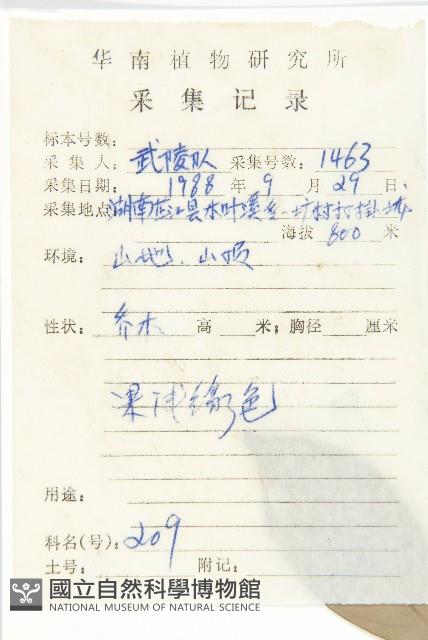 华南植物研究所
采集记录
标本号数：
采集人：武陵队 采集号数：1463
采集日期：1988年9月29日
采集地点：湖南芷江县水叶溪
海拔 800 米
环境：山地、山顶
性状：乔木 高 米；胸径 厘米
果浅绿色
用途：
科名(号)：209
土号： 附记：
國立自然科學博物館
NATIONAL MUSEUM OF NATURAL SCIENCE